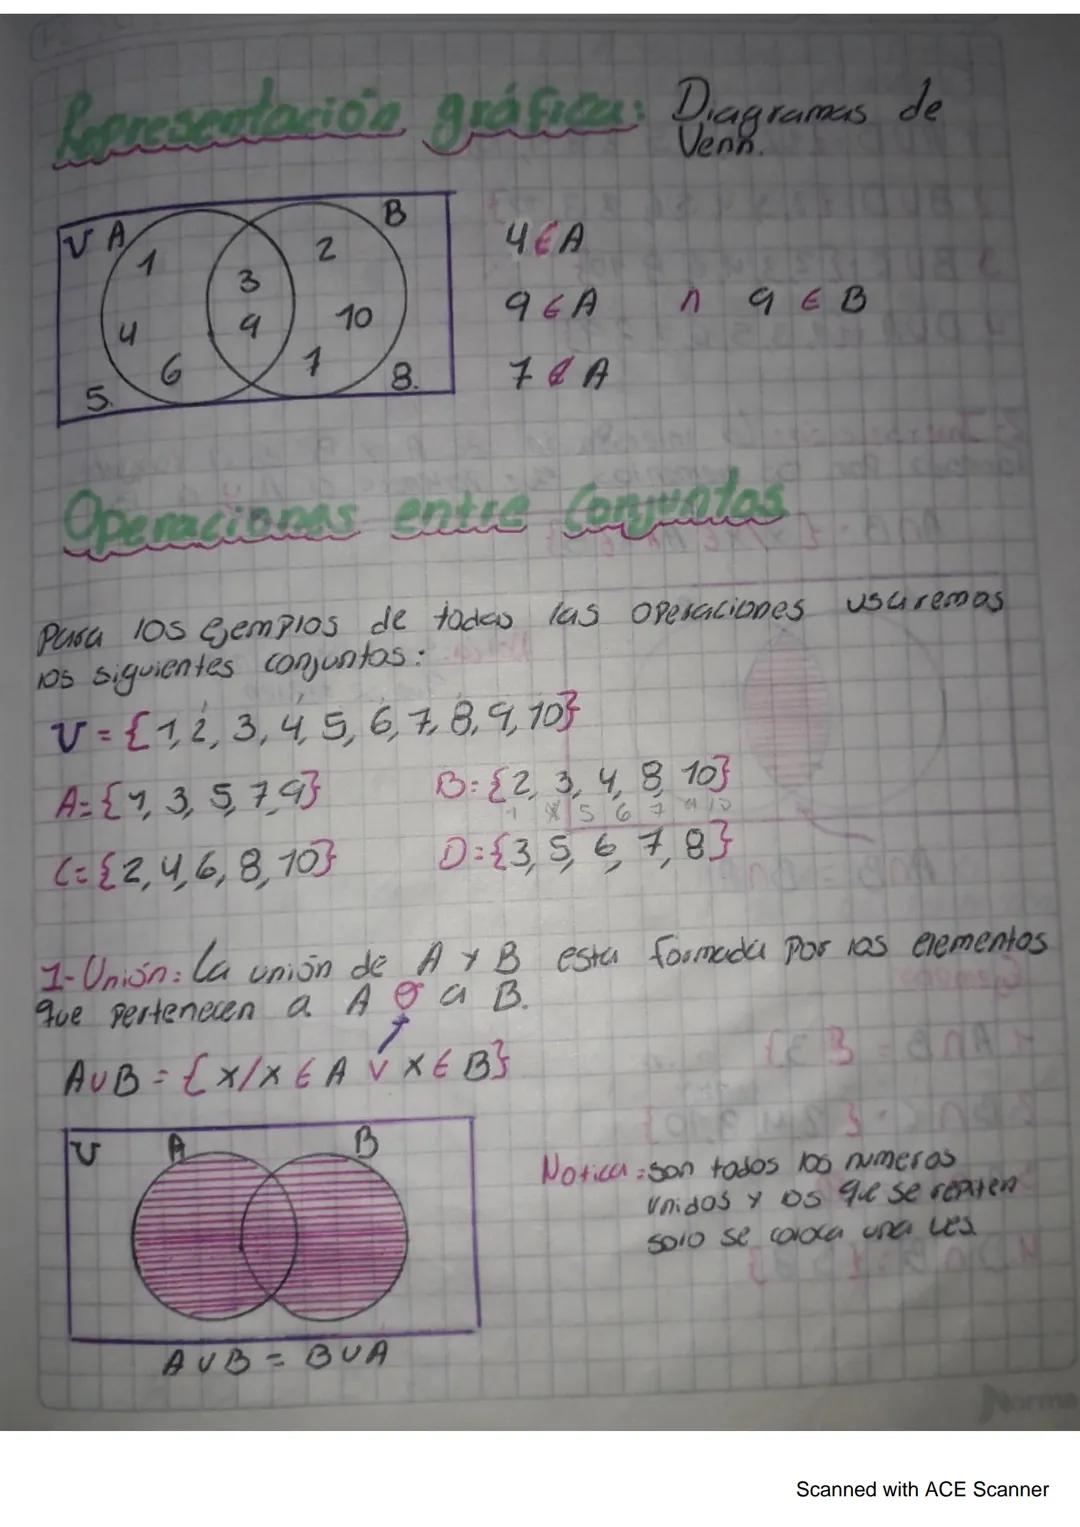 Representación gráfica: Diagramas de
Venn.
U A B
1 2
3
4 9 10
6 7
5. 8.
4 ∈ A
9 ∈ A ∩ 9 ∈ B
7 ∉ A
Operaciones entre Conjuntos
Para los ejemplos de todas las operaciones usaremos
los siguientes conjuntos:
U = {1, 2, 3, 4, 5, 6, 7, 8, 9, 10}
A = {1, 3, 5, 7, 9} B = {2, 3, 4, 8, 10}
C = {2, 4, 6, 8, 10} D = {3, 5, 6, 7, 8}
1- Unión: La unión de A y B esta formada por los elementos
que pertenecen a A o a B.
A ∪ B = {x/x ∈ A ∨ x ∈ B}
U A B
Notica = son todos los numeros
unidos y los que se repiten
solo se coloca una ves
A ∪ B = B ∪ A
Norma
Scanned with ACE Scanner